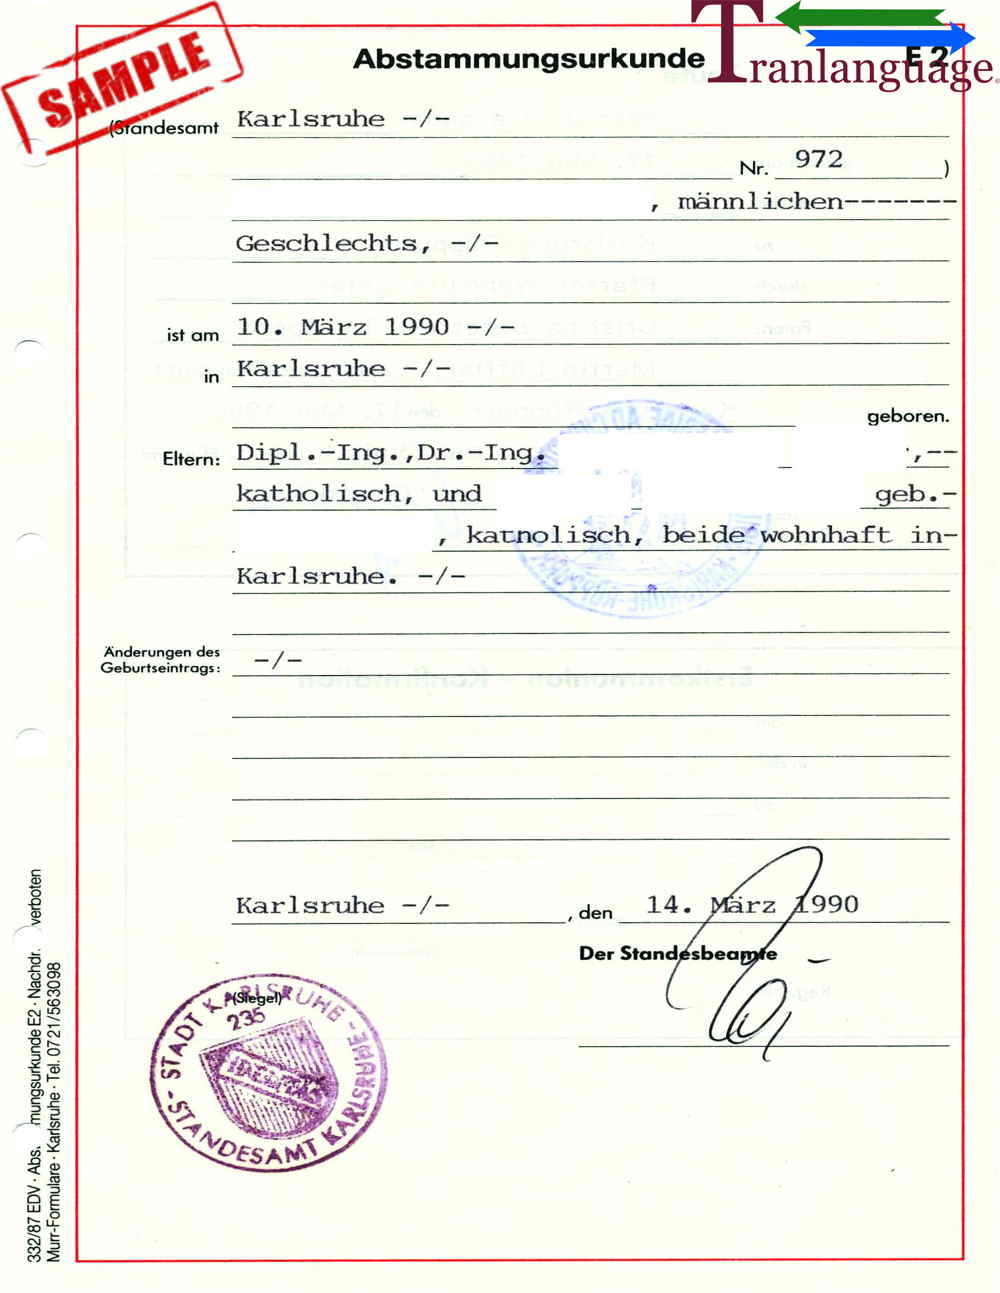 SAMPLE
Tranlanguage
Abstammungsurkunde E 2
(Standesamt Karlsruhe -/-
Nr. 972 )
, männlichen-------
Geschlechts, -/-
ist am 10. März 1990 -/-
in Karlsruhe -/-
geboren.
Eltern: Dipl.-Ing.,Dr.-Ing. ,--
katholisch, und geb.-
, katholisch, beide wohnhaft in-
Karlsruhe. -/-
Änderungen des
Geburtseintrags: -/-
Karlsruhe -/- , den 14. März 1990
Der Standesbeamte
(Siegel)
STADT KARLSRUHE
235
STANDESAMT KARLSRUHE
332/87 EDV · Abs. mungsurkunde E2 · Nachdr. verboten
Murr-Formulare · Karlsruhe · Tel. 07 21/56 30 98
Erstkommunion - Konfirmation